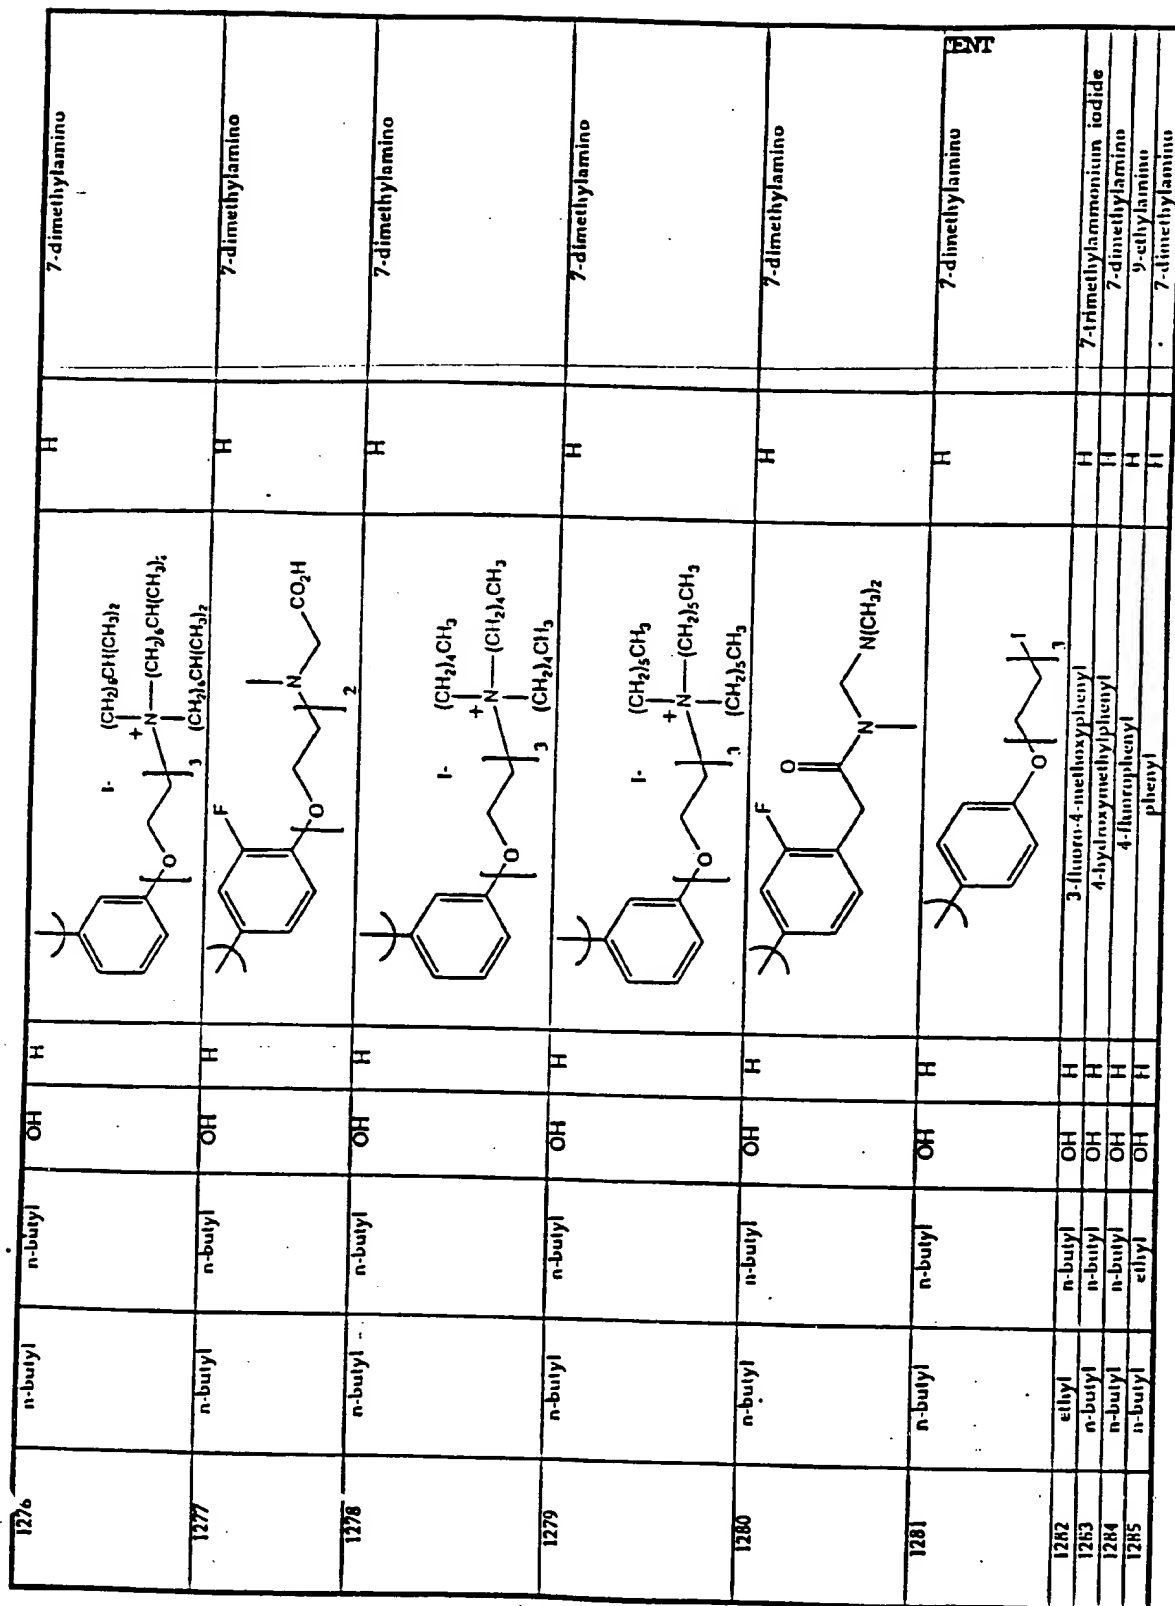 1276 n-butyl n-butyl OH H I- (CH2)6CH(CH3)2 + N (CH2)6CH(CH3)2 (CH2)6CH(CH3)2 O 3 H 7-dimethylamino
1277 n-butyl n-butyl OH H F O N CO2H 2 H 7-dimethylamino
1278 n-butyl n-butyl OH H I- (CH2)4CH3 + N (CH2)4CH3 (CH2)4CH3 O 3 H 7-dimethylamino
1279 n-butyl n-butyl OH H I- (CH2)5CH3 + N (CH2)5CH3 (CH2)5CH3 O 3 H 7-dimethylamino
1280 n-butyl n-butyl OH H F O N N(CH3)2 H 7-dimethylamino
1281 n-butyl n-butyl OH H O I 3 H 7-dimethylamino
1282 ethyl n-butyl OH H 3-fluoro-4-methoxyphenyl H 7-trimethylammonium iodide
1283 n-butyl n-butyl OH H 4-hydroxymethylphenyl H 7-dimethylamino
1284 n-butyl n-butyl OH H 4-fluorophenyl H 9-ethylamino
1285 n-butyl ethyl OH H phenyl H 7-dimethylamino